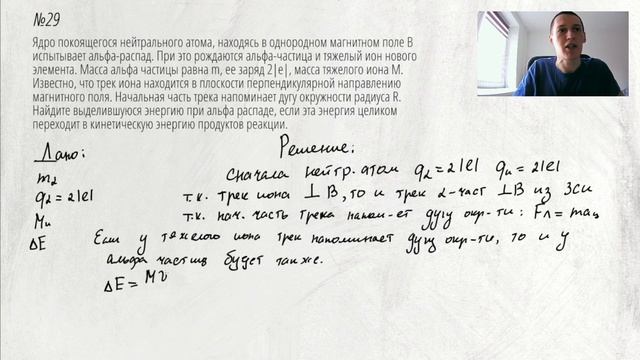 №29
Ядро покоящегося нейтрального атома, находясь в однородном магнитном поле В
испытывает альфа-распад. При это рождаются альфа-частица и тяжелый ион нового
элемента. Масса альфа частицы равна m, ее заряд 2|e|, масса тяжелого иона М.
Известно, что трек иона находится в плоскости перпендикулярной направлению
магнитного поля. Начальная часть трека напоминает дугу окружности радиуса R.
Найдите выделившуюся энергию при альфа распаде, если эта энергия целиком
переходит в кинетическую энергию продуктов реакции.
Дано: Решение:
m₂ сначала нейтр. атом q₂=2|e| qᵤ=2|e|
q₂=2|e| т.к. трек иона ⊥ B, то и трек α-част ⊥B из ЗСИ
Mᵤ т.к. нач. часть трека напом-ет дугу окр-ти: Fл=maц
ΔE Если у тяжелого иона трек напоминает дугу окр-ти, то и у
альфа частиц будет также.
ΔE=